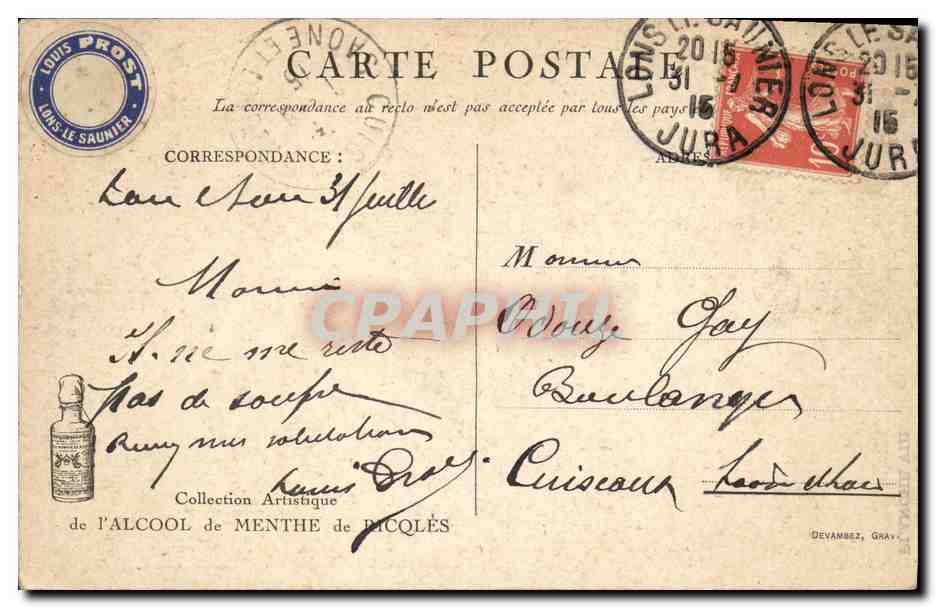 LOUIS PROST
LONS-LE SAUNIER
CARTE POSTALE
La correspondance au recto n'est pas acceptée par tous les pays
LONS LE SAUNIER
20 15
31 -7
15
JURA
LONS LE SA
20 15
31 -7
15
JURA
10
CORRESPONDANCE :
ADRES
Lons 31 Juillet
Monsieur
Il ne me reste
pas de soufre
mes salutations
Louis Prost
Monsieur
Odouze Gay
Boulanger
Cuiseaux Saône & Loire
CPAPHIL
Collection Artistique
de l'ALCOOL de MENTHE de RICQLÈS
DEVAMBEZ, GRAV.